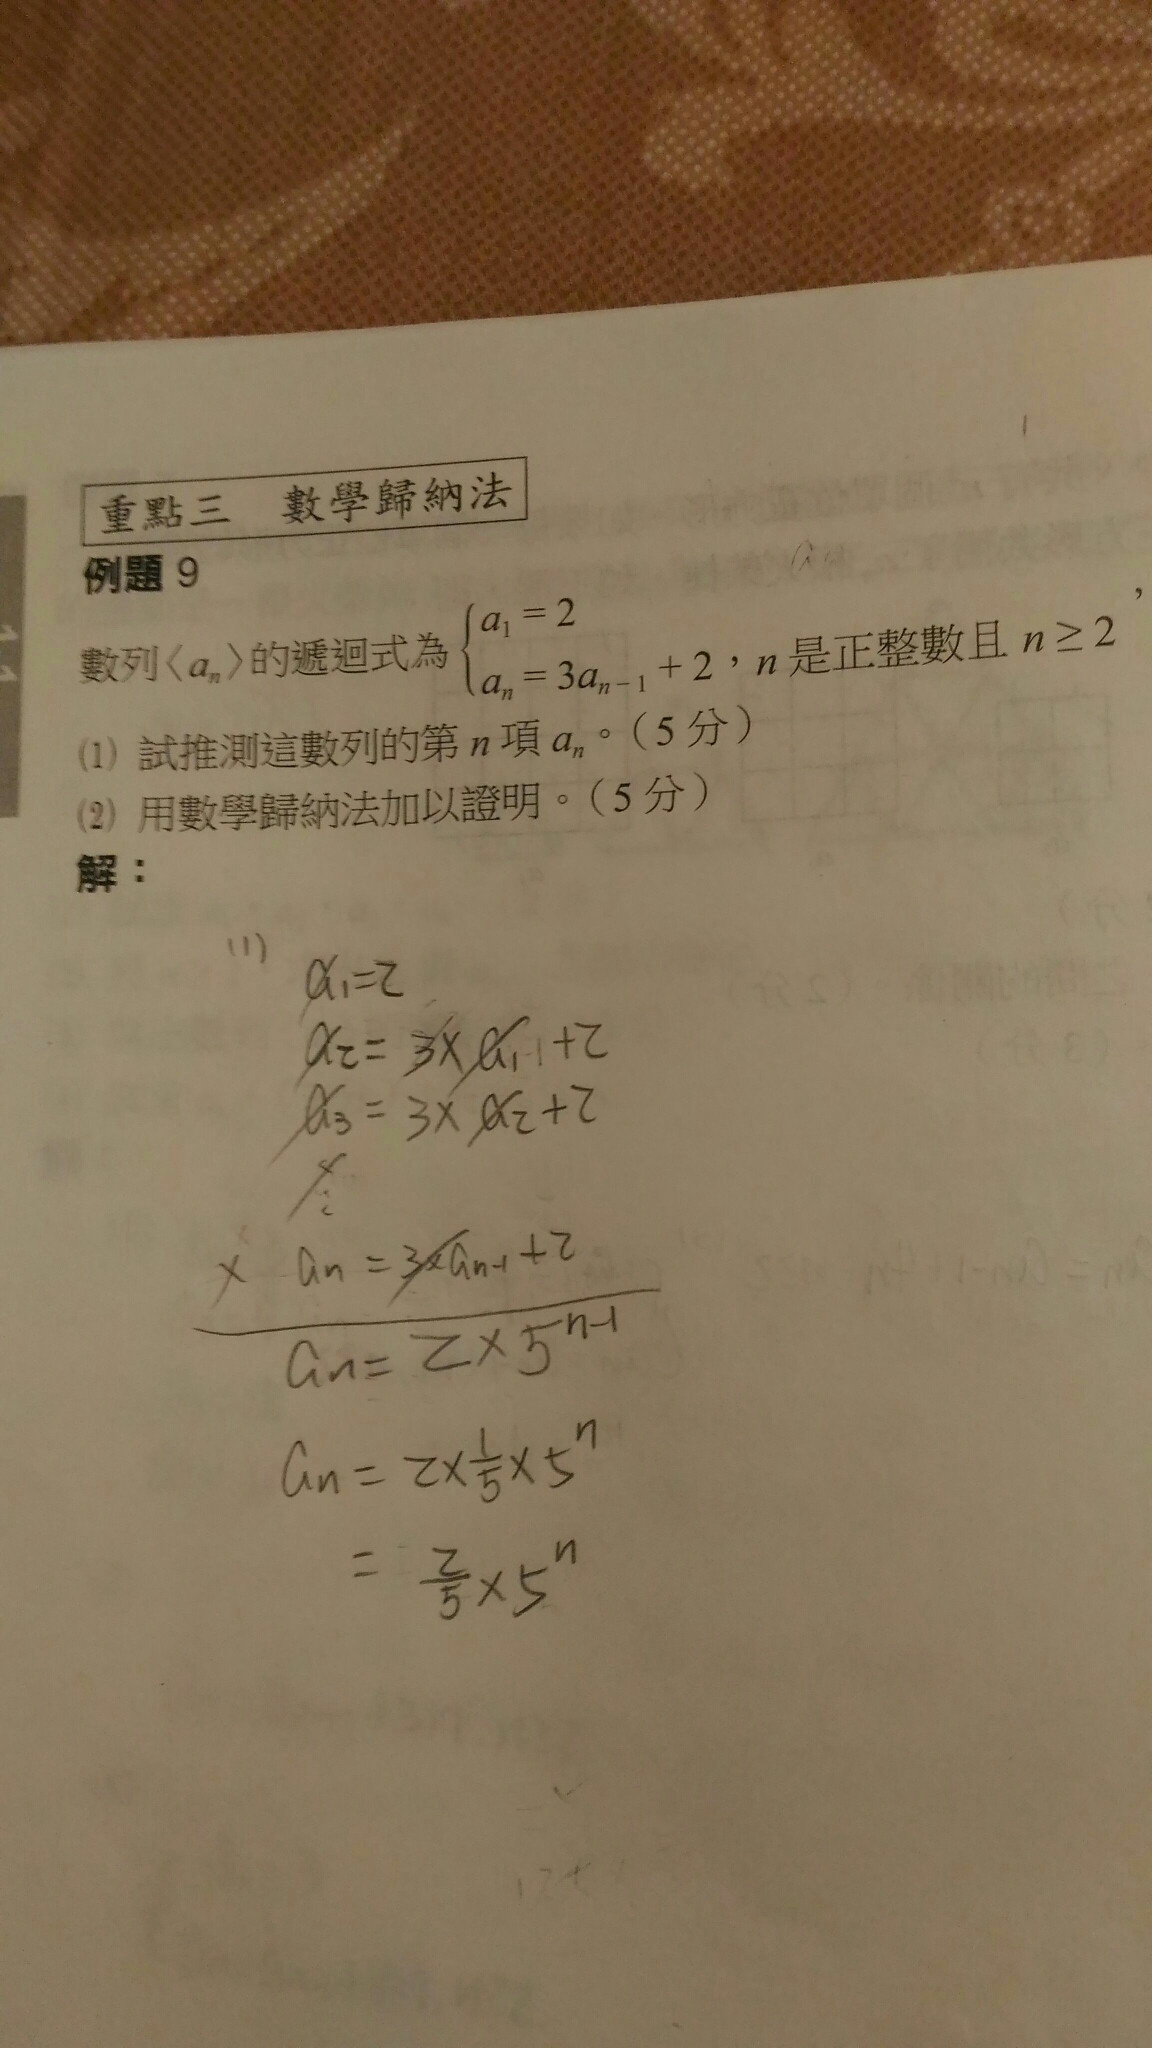 重點三 數學歸納法
例題 9
數列〈aₙ〉的遞迴式為 { a₁ = 2
aₙ = 3aₙ₋₁ + 2，n 是正整數且 n ≥ 2，
(1) 試推測這數列的第 n 項 aₙ。（5 分）
(2) 用數學歸納法加以證明。（5 分）
解：
(1)
a₁=2
a₂= 3×a₁+2
a₃= 3×a₂+2
⋮
× aₙ = 3×aₙ₋₁+2
aₙ= 2×5ⁿ⁻¹
aₙ= 2×1/5×5ⁿ
= 2/5×5ⁿ